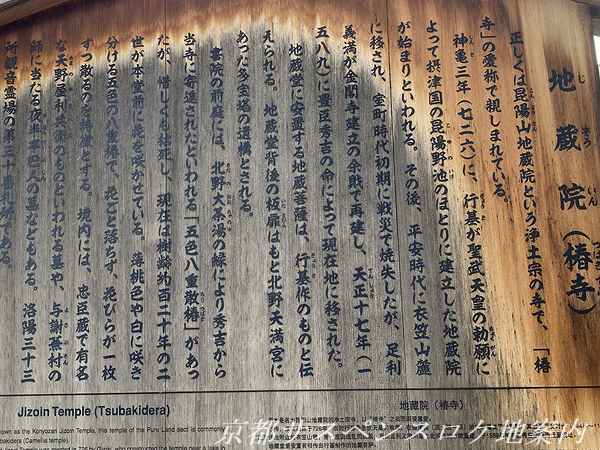 地蔵院(椿寺)
じぞういん つばきでら
正しくは昆陽山地蔵院という浄土宗の寺で、「椿
寺」の愛称で親しまれている。
神亀三年(七二六)に、行基が聖武天皇の勅願に
よって摂津国の昆陽野池のほとりに建立した地蔵院
が始まりといわれる。その後、平安時代に衣笠山麓
に移され、室町時代初期に戦災で焼失したが、足利
義満が金閣寺建立の余財で再建し、天正十七年(一
五八九)に豊臣秀吉の命によって現在地に移された。
地蔵堂に安置する地蔵菩薩は、行基作のものと伝
えられる。地蔵堂背後の板扉はもと北野天満宮に
あった多宝塔の遺構とされる。
書院の前庭には、北野大茶湯の縁により秀吉から
当寺に寄進されたといわれる「五色八重散椿」があっ
たが、惜しくも枯死し、現在は樹齢約百二十年の二
世が本堂前に花を咲かせている。薄桃色や白に咲き
分ける五色の八重椿で、花ごと落ちず、花びらが一枚
ずつ散るのを特徴とする。境内には、忠臣蔵で有名
な天野屋利兵衛のものといわれる墓や、与謝蕪村の
師に当たる夜半亭巴人の墓などもある。洛陽三十三
所観音霊場の第三十番札所である。
Jizoin Temple (Tsubakidera)
known as the Konyozan Jizoin Temple, this temple of the Pure Land sect is commonly
bakidera (Camellia temple).
地藏院(椿寺)
京都市サスペンスロケ地案内